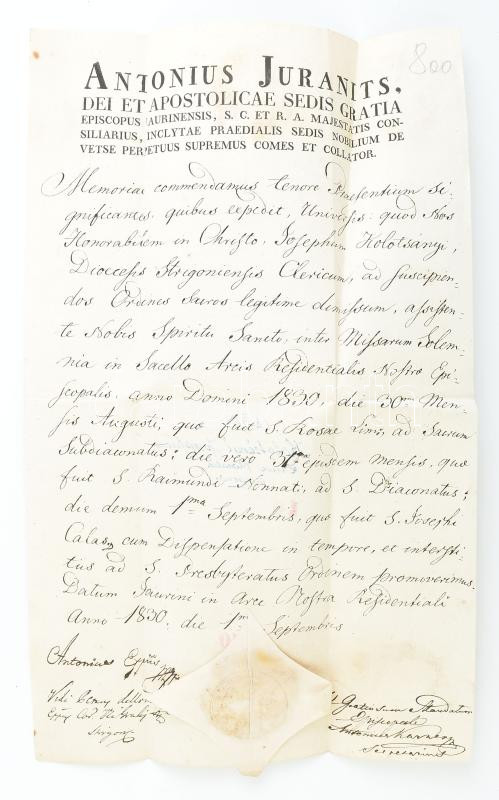 800
ANTONIUS JURANITS,
DEI ET APOSTOLICAE SEDIS GRATIA
EPISCOPUS JAURINENSIS, S. C. ET R. A. MAJESTATIS CON-
SILIARIUS, INCLYTAE PRAEDIALIS SEDIS NOBILIUM DE
VETSE PERPETUUS SUPREMUS COMES ET COLLATOR.
Memoriae commendamus tenore Praesentium Si-
gnificantes, quibus expedit, Universis: quod Nos
Honorabilem in Christo, Josephum Kolotsányi,
Dioecesis Strigoniensis Clericum, ad suscipien-
dos Ordines Sacros legitime dimissum, assisten-
te Nobis Spiritu Sancto, inter Missarum Solem-
nia in Sacello Arcis Residentialis Nostrae Epi-
scopalis, anno Domini 1830, die 30ma Men-
sis Augusti, quae fuit S. Rosae Lim, ad Sacrum
Subdiaconatus; die vero 31a ejusdem Mensis, quae
fuit S. Raimundi Nonnati, ad S. Diaconatus;
die demum 1ma Septembris, quae fuit S. Josephi
Calas, cum Dispensatione in tempore, et intersti-
tiis ad S. Presbyteratus Ordinem promoverimus.
Datum Jaurini in Arce Nostra Residentiali
Anno 1830. die 1ma Septembris
Antonius Eppus
Vidi
Ad Gratiosum Mandatum
Episcopale
Antonius
Secretarius